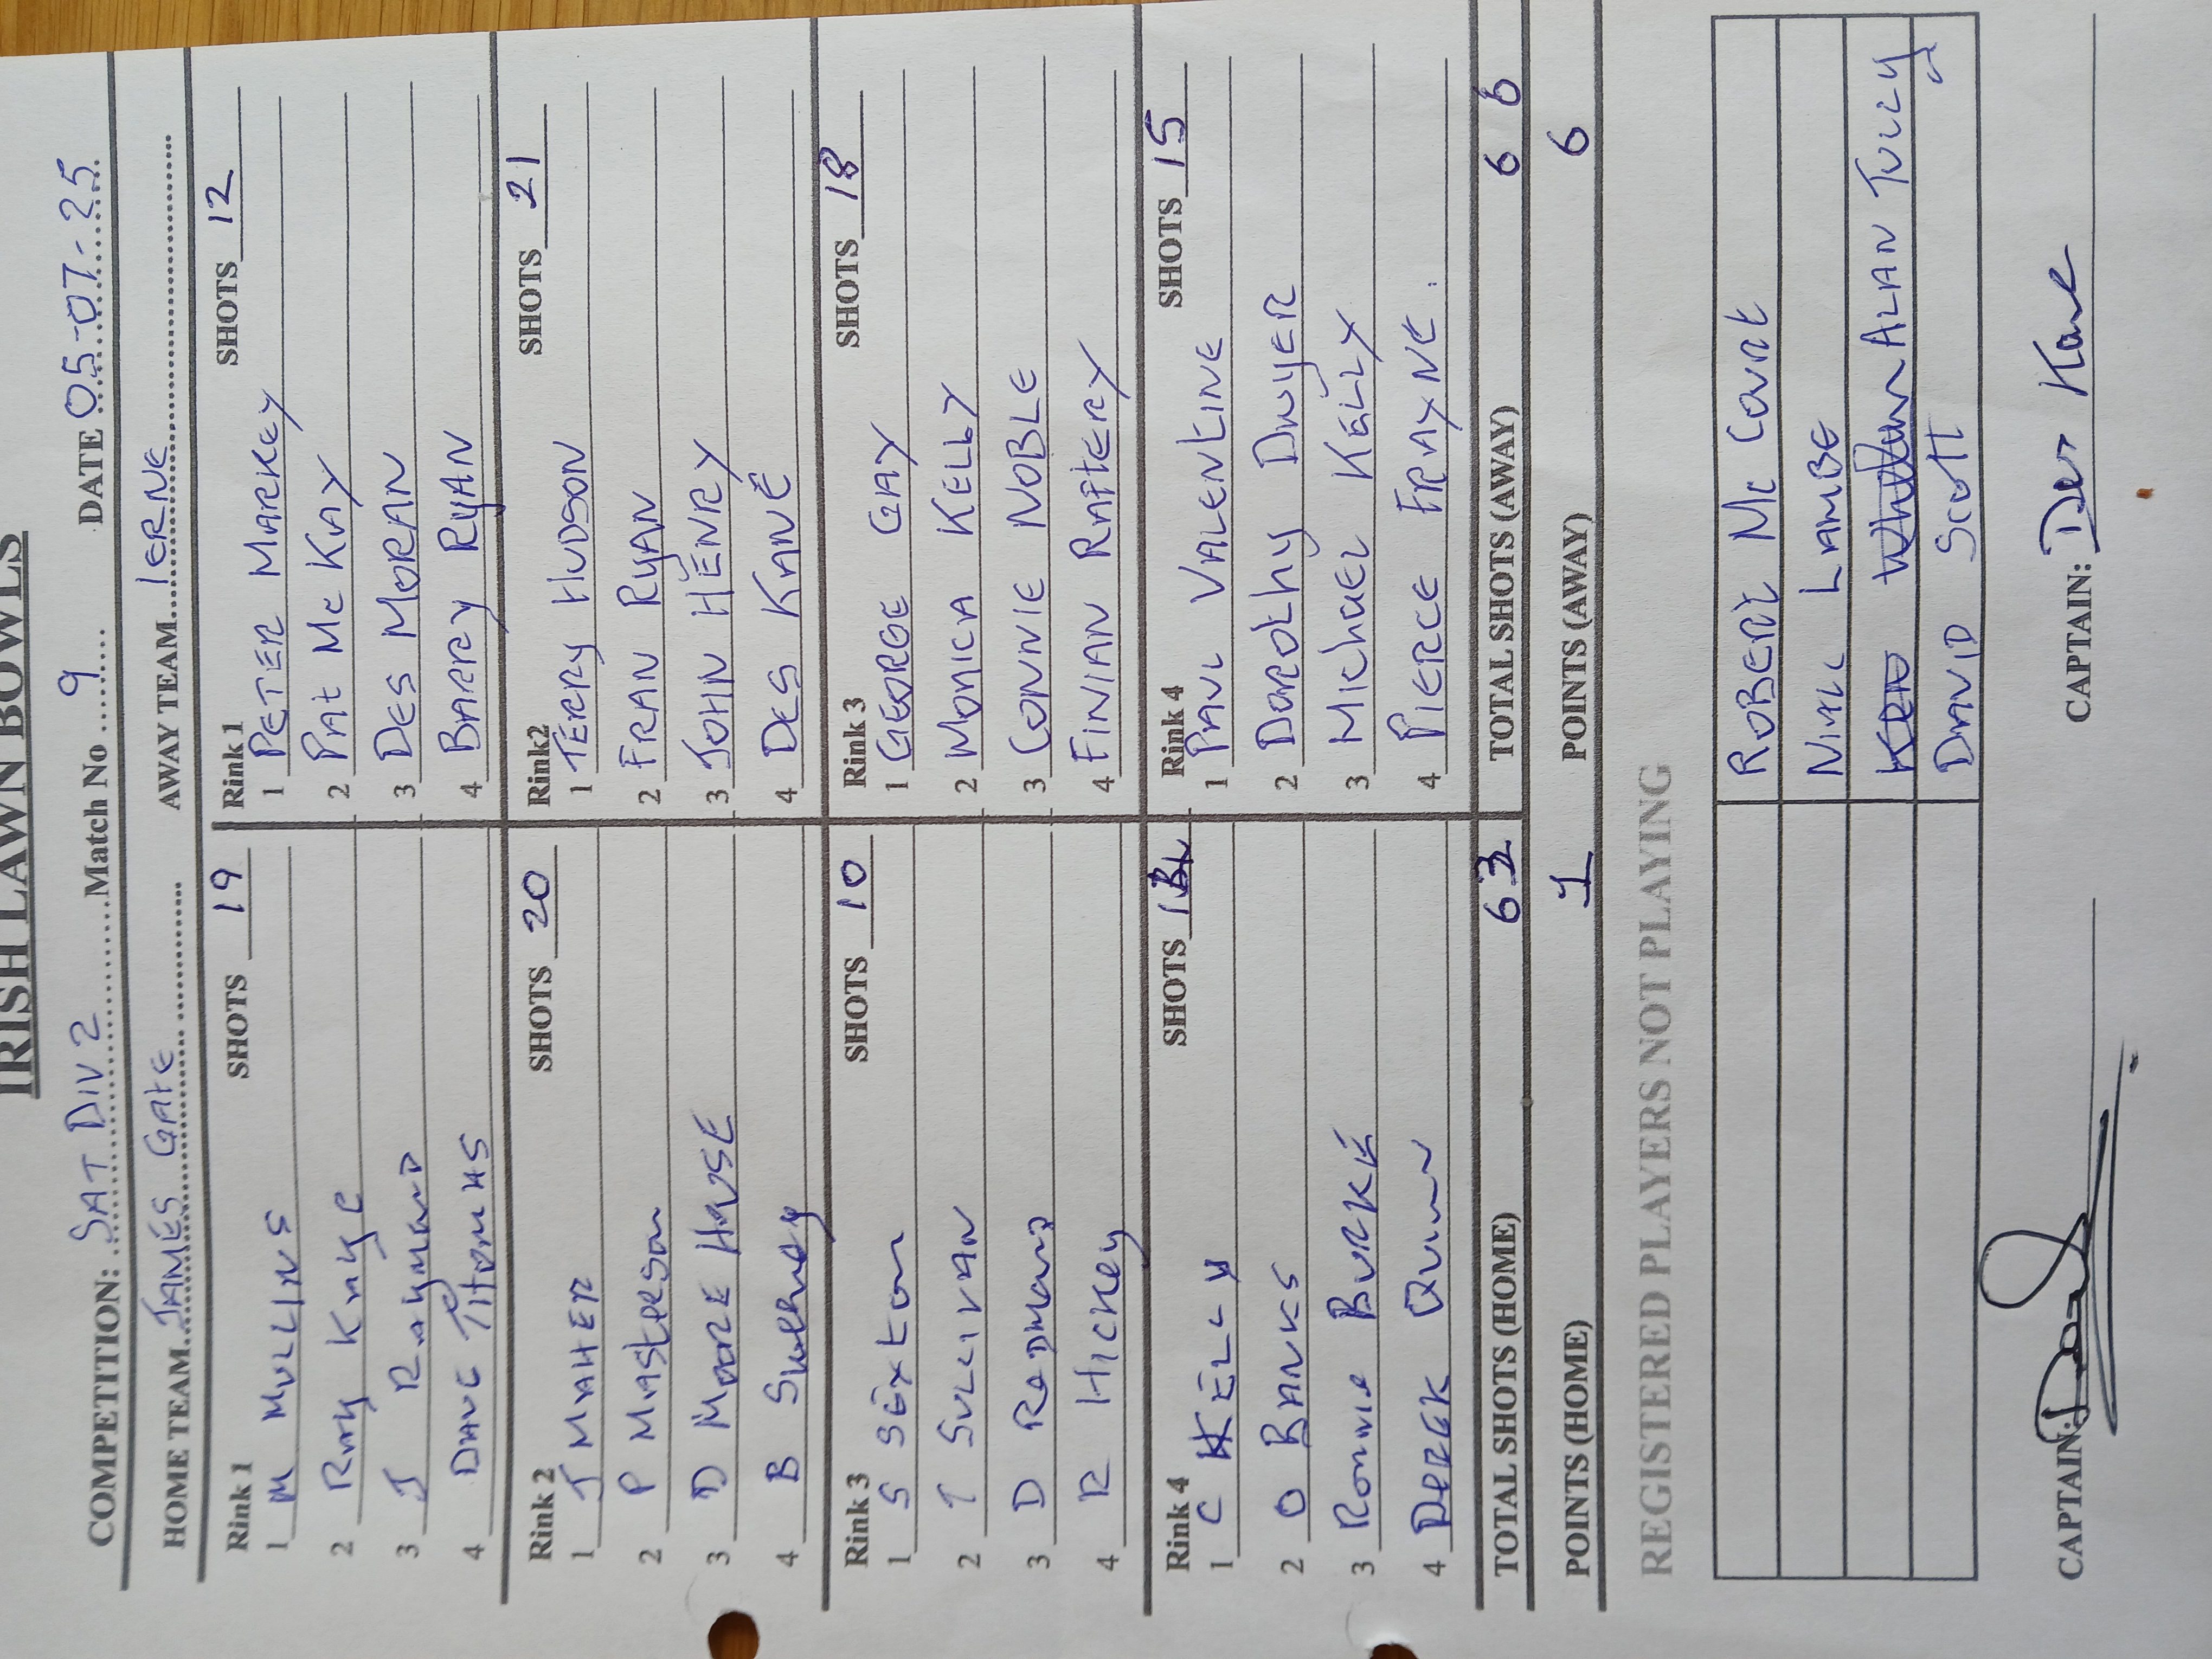 IRISH LAWN BOWLS
COMPETITION: SAT DIV 2 Match No 9 DATE 05-07-25
HOME TEAM JAMES GATE AWAY TEAM IERNE
Rink 1 SHOTS 19
1 M MULLINS
2 Roy
3 J Raymond
4 DAVE THOMAS
Rink 1 SHOTS 12
1 PETER MARKEY
2 PAt Mc KAY
3 DES MORAN
4 BARRY RYAN
Rink 2 SHOTS 20
1 J MAHER
2 P MAStERSon
3 D MOORE HOUSE
4 B
Rink2 SHOTS 21
1 TERRY HUDSON
2 FRAN RYAN
3 JOHN HENRY
4 DES KANE
Rink 3 SHOTS 10
1 S SExton
2 T SULLIVAN
3 D REDMOND
4 R HICKey
Rink 3 SHOTS 18
1 GEORGE GAY
2 MONICA KELLY
3 CONNIE NOBLE
4 FINIAN RAFtERY
Rink 4 SHOTS
1 C KELLY
2 O BANKS
3 Ronnie BURKE
4 DEREK QUINN
Rink 4 SHOTS 15
1 PAUL VALENtINE
2 DOROthy DWyER
3 MIChaEL KELLY
4 PIERCE FRAYNE.
TOTAL SHOTS (HOME) 63 TOTAL SHOTS (AWAY) 66
POINTS (HOME) 1 POINTS (AWAY) 6
REGISTERED PLAYERS NOT PLAYING
ROBERt Mc Court
NIALL LAMBE
ALAN TULLY
DAVID SCOtt
CAPTAIN: CAPTAIN: Des Kane